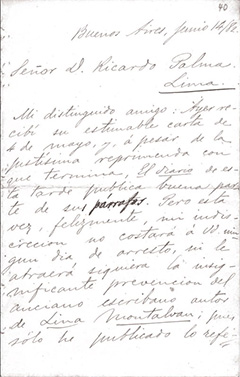 40
Buenos Aires, junio 14/82.
Señor D. Ricardo Palma.
Lima.
Mi distinguido amigo: Ayer re-
cibí su estimable carta de
4 de mayo, y, á pesar de la
justísima reprimenda con
que termina, El Diario de es-
ta tarde publica buena par-
te de sus párrafos. Pero esta
vez, felizmente, mi indis-
crecion no costará á U. nin-
gun dia de arresto, ni le
atraerá siquiera la insig-
nificante prevencion del
anciano escribano autor
de Lina Montalvan; pues
sólo he publicado lo refe-